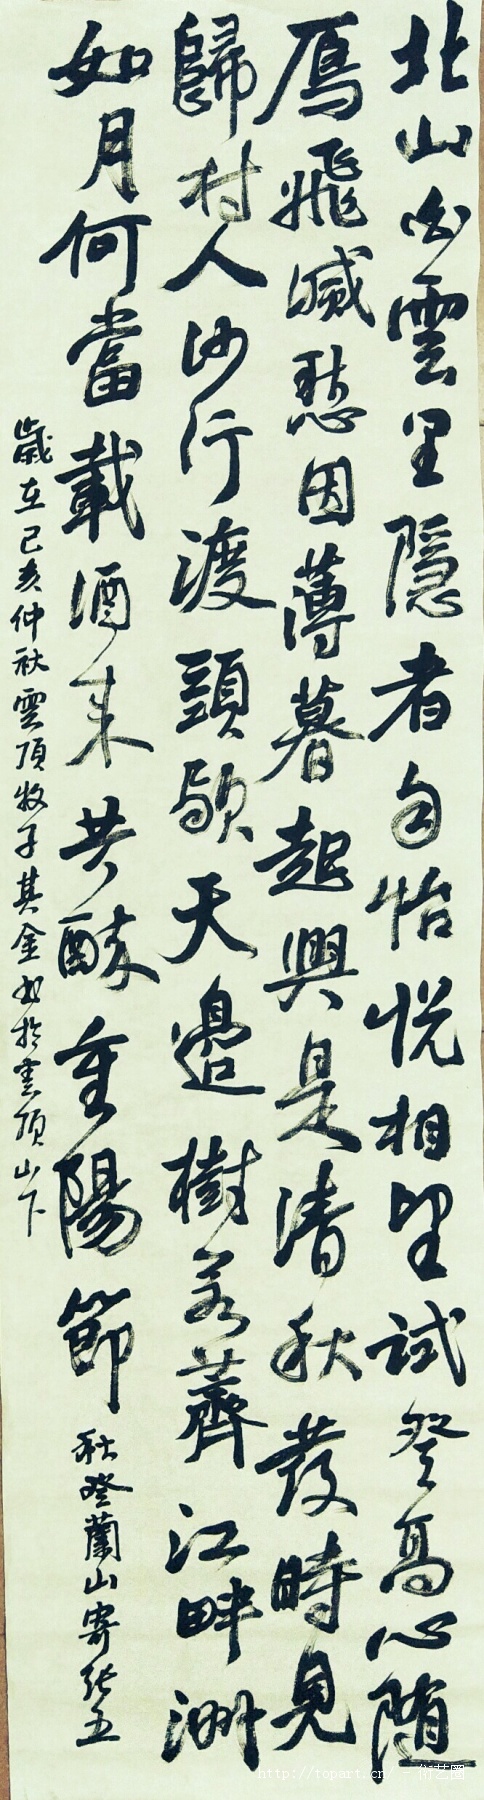 北山白雲里隱者自怡悦相望試登高心隨
鴈飛滅愁因薄暮起興是清秋發時見
歸村人沙行渡頭歇天邊樹若薺江畔洲
如月何當載酒来共醉重陽節 秋登蘭山寄张五
歲在己亥仲秋雲顶牧子其金书於雲顶山下
http://topart.cn/